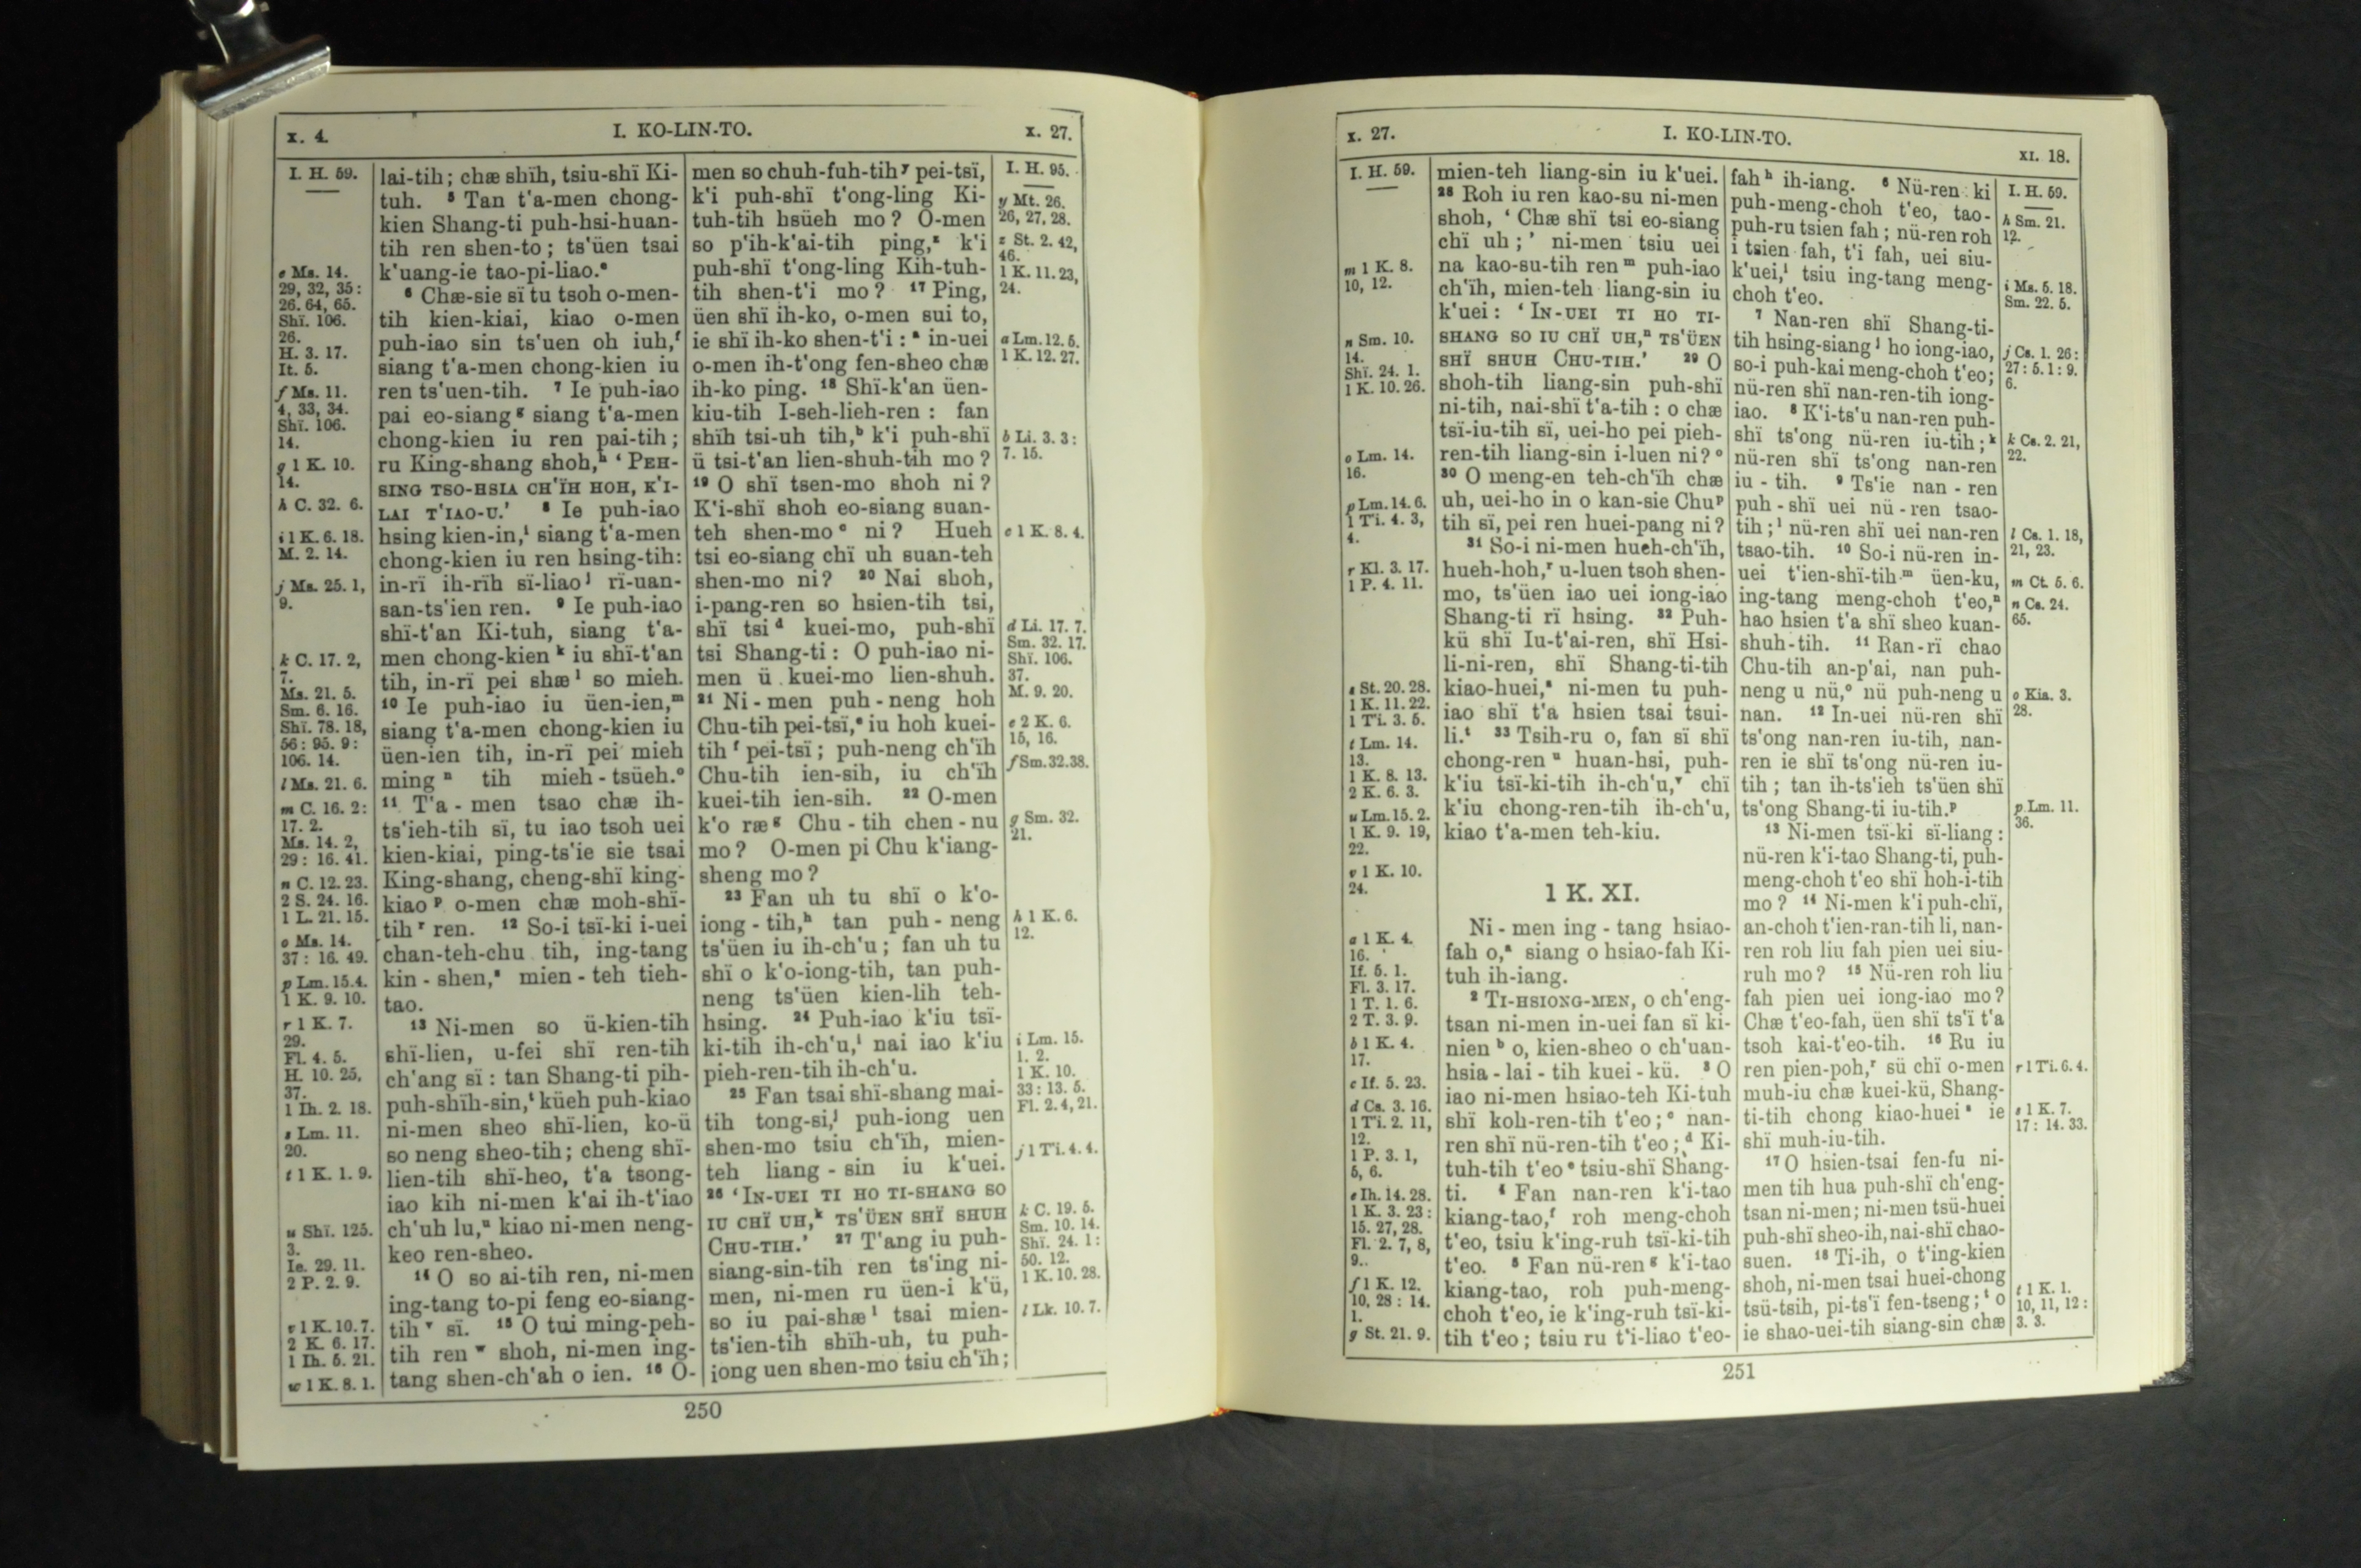 x. 4.
I. KO-LIN-TO.
x. 27.
I. H. 59.
e Ms. 14.
29, 32, 35:
26. 64, 65.
Shï. 106.
26.
H. 3. 17.
It. 5.
f Ms. 11.
4, 33, 34.
Shï. 106.
14.
g 1 K. 10.
14.
h C. 32. 6.
i 1 K. 6. 18.
M. 2. 14.
j Ms. 25. 1,
9.
k C. 17. 2,
7.
Ms. 21. 5.
Sm. 6. 16.
Shï. 78. 18,
56: 95. 9:
106. 14.
l Ms. 21. 6.
m C. 16. 2:
17. 2.
Ms. 14. 2,
29: 16. 41.
n C. 12. 23.
2 S. 24. 16.
1 L. 21. 15.
o Ms. 14.
37: 16. 49.
p Lm. 15. 4.
1 K. 9. 10.
r 1 K. 7.
29.
Fl. 4. 5.
H. 10. 25,
37.
1 Ih. 2. 18.
s Lm. 11.
20.
t 1 K. 1. 9.
u Shï. 125.
3.
Ie. 29. 11.
2 P. 2. 9.
v 1 K. 10. 7.
2 K. 6. 17.
1 Ih. 5. 21.
w 1 K. 8. 1.
lai-tih; chæ shïh, tsiu-shï Ki-
tuh. 5 Tan t'a-men chong-
kien Shang-ti puh-hsi-huan-
tih ren shen-to; ts'üen tsai
k'uang-ie tao-pi-liao.e
6 Chæ-sie sï tu tsoh o-men-
tih kien-kiai, kiao o-men
puh-iao sin ts'uen oh iuh,f
siang t'a-men chong-kien iu
ren ts'uen-tih. 7 Ie puh-iao
pai eo-siang g siang t'a-men
chong-kien iu ren pai-tih;
ru King-shang shoh,h 'PEH-
SING TSO-HSIA CH'ÏH HOH, K'I-
LAI T'IAO-U.' 8 Ie puh-iao
hsing kien-in,i siang t'a-men
chong-kien iu ren hsing-tih:
in-rï ih-rïh sï-liao j rï-uan-
san-ts'ien ren. 9 Ie puh-iao
shï-t'an Ki-tuh, siang t'a-
men chong-kien k iu shï-t'an
tih, in-rï pei shæ l so mieh.
10 Ie puh-iao iu üen-ien,m
siang t'a-men chong-kien iu
üen-ien tih, in-rï pei mieh
ming n tih mieh-tsüeh.o
11 T'a-men tsao chæ ih-
ts'ieh-tih sï, tu iao tsoh uei
kien-kiai, ping-ts'ie sie tsai
King-shang, cheng-shï king-
kiao p o-men chæ moh-shï-
tih r ren. 12 So-i tsï-ki i-uei
chan-teh-chu tih, ing-tang
kin-shen,s mien-teh tieh-
tao.
13 Ni-men so ü-kien-tih
shï-lien, u-fei shï ren-tih
ch'ang sï: tan Shang-ti pih-
puh-shïh-sin,t küeh puh-kiao
ni-men sheo shï-lien, ko-ü
so neng sheo-tih; cheng shï-
lien-tih shï-heo, t'a tsong-
iao kih ni-men k'ai ih-t'iao
ch'uh lu,u kiao ni-men neng-
keo ren-sheo.
14 O so ai-tih ren, ni-men
ing-tang to-pi feng eo-siang-
tih v sï. 15 O tui ming-peh-
tih ren w shoh, ni-men ing-
tang shen-ch'ah o ien. 16 O-
men so chuh-fuh-tih y pei-tsï,
k'i puh-shï t'ong-ling Ki-
tuh-tih hsüeh mo? O-men
so p'ih-k'ai-tih ping,z k'i
puh-shï t'ong-ling Kih-tuh-
tih shen-t'i mo? 17 Ping,
üen shï ih-ko, o-men sui to,
ie shï ih-ko shen-t'i: a in-uei
o-men ih-t'ong fen-sheo chæ
ih-ko ping. 18 Shï-k'an üen-
kiu-tih I-seh-lieh-ren: fan
shïh tsi-uh tih,b k'i puh-shï
ü tsi-t'an lien-shuh-tih mo?
19 O shï tsen-mo shoh ni?
K'i-shï shoh eo-siang suan-
teh shen-mo c ni? Hueh
tsi eo-siang chï uh suan-teh
shen-mo ni? 20 Nai shoh,
i-pang-ren so hsien-tih tsi,
shï tsi d kuei-mo, puh-shï
tsi Shang-ti: O puh-iao ni-
men ü kuei-mo lien-shuh.
21 Ni-men puh-neng hoh
Chu-tih pei-tsï,e iu hoh kuei-
tih f pei-tsï; puh-neng ch'ïh
Chu-tih ien-sih, iu ch'ïh
kuei-tih ien-sih. 22 O-men
k'o ræ g Chu-tih chen-nu
mo? O-men pi Chu k'iang-
sheng mo?
23 Fan uh tu shï o k'o-
iong-tih,h tan puh-neng
ts'üen iu ih-ch'u; fan uh tu
shï o k'o-iong-tih, tan puh-
neng ts'üen kien-lih teh-
hsing. 24 Puh-iao k'iu tsï-
ki-tih ih-ch'u,i nai iao k'iu
pieh-ren-tih ih-ch'u.
25 Fan tsai shï-shang mai-
tih tong-si,j puh-iong uen
shen-mo tsiu ch'ïh, mien-
teh liang-sin iu k'uei.
26 'IN-UEI TI HO TI-SHANG SO
IU CHÏ UH,k TS'ÜEN SHÏ SHUH
CHU-TIH.' 27 T'ang iu puh-
siang-sin-tih ren ts'ing ni-
men, ni-men ru üen-i k'ü,
so iu pai-shæ l tsai mien-
ts'ien-tih shïh-uh, tu puh-
iong uen shen-mo tsiu ch'ïh;
I. H. 95.
y Mt. 26.
26, 27, 28.
z St. 2. 42,
46.
1 K. 11. 23,
24.
a Lm. 12. 5.
1 K. 12. 27.
b Li. 3. 3:
7. 15.
c 1 K. 8. 4.
d Li. 17. 7.
Sm. 32. 17.
Shï. 106.
37.
M. 9. 20.
e 2 K. 6.
15, 16.
f Sm. 32. 38.
g Sm. 32.
21.
h 1 K. 6.
12.
i Lm. 15.
1. 2.
1 K. 10.
33: 13. 5.
Fl. 2. 4, 21.
j 1 Ti. 4. 4.
k C. 19. 5.
Sm. 10. 14.
Shï. 24. 1:
50. 12.
1 K. 10. 28.
l Lk. 10. 7.
250
x. 27.
I. KO-LIN-TO.
XI. 18.
I. H. 59.
m 1 K. 8.
10, 12.
n Sm. 10.
14.
Shï. 24. 1.
1 K. 10. 26.
o Lm. 14.
16.
p Lm. 14. 6.
1 Ti. 4. 3,
4.
r Kl. 3. 17.
1 P. 4. 11.
s St. 20. 28.
1 K. 11. 22.
1 Ti. 3. 5.
t Lm. 14.
13.
1 K. 8. 13.
2 K. 6. 3.
u Lm. 15. 2.
1 K. 9. 19,
22.
v 1 K. 10.
24.
a 1 K. 4.
16.
If. 5. 1.
Fl. 3. 17.
1 T. 1. 6.
2 T. 3. 9.
b 1 K. 4.
17.
c If. 5. 23.
d Cs. 3. 16.
1 Ti. 2. 11,
12.
1 P. 3. 1,
5, 6.
e Ih. 14. 28.
1 K. 3. 23:
15. 27, 28.
Fl. 2. 7, 8,
9.
f 1 K. 12.
10, 28: 14.
1.
g St. 21. 9.
mien-teh liang-sin iu k'uei.
28 Roh iu ren kao-su ni-men
shoh, 'Chæ shï tsi eo-siang
chï uh;' ni-men tsiu uei
na kao-su-tih ren m puh-iao
ch'ïh, mien-teh liang-sin iu
k'uei: 'IN-UEI TI HO TI-
SHANG SO IU CHÏ UH,n TS'ÜEN
SHÏ SHUH CHU-TIH.' 29 O
shoh-tih liang-sin puh-shï
ni-tih, nai-shï t'a-tih: o chæ
tsï-iu-tih sï, uei-ho pei pieh-
ren-tih liang-sin i-luen ni? o
30 O meng-en teh-ch'ïh chæ
uh, uei-ho in o kan-sie Chu p
tih sï, pei ren huei-pang ni?
31 So-i ni-men hueh-ch'ïh,
hueh-hoh,r u-luen tsoh shen-
mo, ts'üen iao uei iong-iao
Shang-ti rï hsing. 32 Puh-
kü shï Iu-t'ai-ren, shï Hsi-
li-ni-ren, shï Shang-ti-tih
kiao-huei,s ni-men tu puh-
iao shï t'a hsien tsai tsui-
li.t 33 Tsih-ru o, fan sï shï
chong-ren u huan-hsi, puh-
k'iu tsï-ki-tih ih-ch'u,v chï
k'iu chong-ren-tih ih-ch'u,
kiao t'a-men teh-kiu.
1 K. XI.
Ni-men ing-tang hsiao-
fah o,a siang o hsiao-fah Ki-
tuh ih-iang.
2 TI-HSIONG-MEN, o ch'eng-
tsan ni-men in-uei fan sï ki-
nien b o, kien-sheo o ch'uan-
hsia-lai-tih kuei-kü. 3 O
iao ni-men hsiao-teh Ki-tuh
shï koh-ren-tih t'eo; c nan-
ren shï nü-ren-tih t'eo; d Ki-
tuh-tih t'eo e tsiu-shï Shang-
ti. 4 Fan nan-ren k'i-tao
kiang-tao,f roh meng-choh
t'eo, tsiu k'ing-ruh tsï-ki-tih
t'eo. 5 Fan nü-ren g k'i-tao
kiang-tao, roh puh-meng-
choh t'eo, ie k'ing-ruh tsï-ki-
tih t'eo; tsiu ru t'i-liao t'eo-
fah h ih-iang. 6 Nü-ren ki
puh-meng-choh t'eo, tao-
puh-ru tsien fah; nü-ren roh
i tsien fah, t'i fah, uei siu-
k'uei,i tsiu ing-tang meng-
choh t'eo.
7 Nan-ren shï Shang-ti-
tih hsing-siang j ho iong-iao,
so-i puh-kai meng-choh t'eo;
nü-ren shï nan-ren-tih iong-
iao. 8 K'i-ts'u nan-ren puh-
shï ts'ong nü-ren iu-tih; k
nü-ren shï ts'ong nan-ren
iu-tih. 9 Ts'ie nan-ren
puh-shï uei nü-ren tsao-
tih; l nü-ren shï uei nan-ren
tsao-tih. 10 So-i nü-ren in-
uei t'ien-shï-tih m üen-ku,
ing-tang meng-choh t'eo,n
hao hsien t'a shï sheo kuan-
shuh-tih. 11 Ran-rï chao
Chu-tih an-p'ai, nan puh-
neng u nü,o nü puh-neng u
nan. 12 In-uei nü-ren shï
ts'ong nan-ren iu-tih, nan-
ren ie shï ts'ong nü-ren iu-
tih; tan ih-ts'ieh ts'üen shï
ts'ong Shang-ti iu-tih.p
13 Ni-men tsï-ki sï-liang:
nü-ren k'i-tao Shang-ti, puh-
meng-choh t'eo shï hoh-i-tih
mo? 14 Ni-men k'i puh-chï,
an-choh t'ien-ran-tih li, nan-
ren roh liu fah pien uei siu-
ruh mo? 15 Nü-ren roh liu
fah pien uei iong-iao mo?
Chæ t'eo-fah, üen shï ts'ï t'a
tsoh kai-t'eo-tih. 16 Ru iu
ren pien-poh,r sü chï o-men
muh-iu chæ kuei-kü, Shang-
ti-tih chong kiao-huei s ie
shï muh-iu-tih.
17 O hsien-tsai fen-fu ni-
men tih hua puh-shï ch'eng-
tsan ni-men; ni-men tsü-huei
puh-shï sheo-ih, nai-shï chao-
suen. 18 Ti-ih, o t'ing-kien
shoh, ni-men tsai huei-chong
tsü-tsih, pi-ts'ï fen-tseng; t o
ie shao-uei-tih siang-sin chæ
I. H. 59.
h Sm. 21.
12.
i Ms. 5. 18.
Sm. 22. 5.
j Cs. 1. 26:
27: 5. 1: 9.
6.
k Cs. 2. 21,
22.
l Cs. 1. 18,
21, 23.
m Ct. 5. 6.
n Cs. 24.
65.
o Kia. 3.
28.
p Lm. 11.
36.
r 1 Ti. 6. 4.
s 1 K. 7.
17: 14. 33.
t 1 K. 1.
10, 11, 12:
3. 3.
251